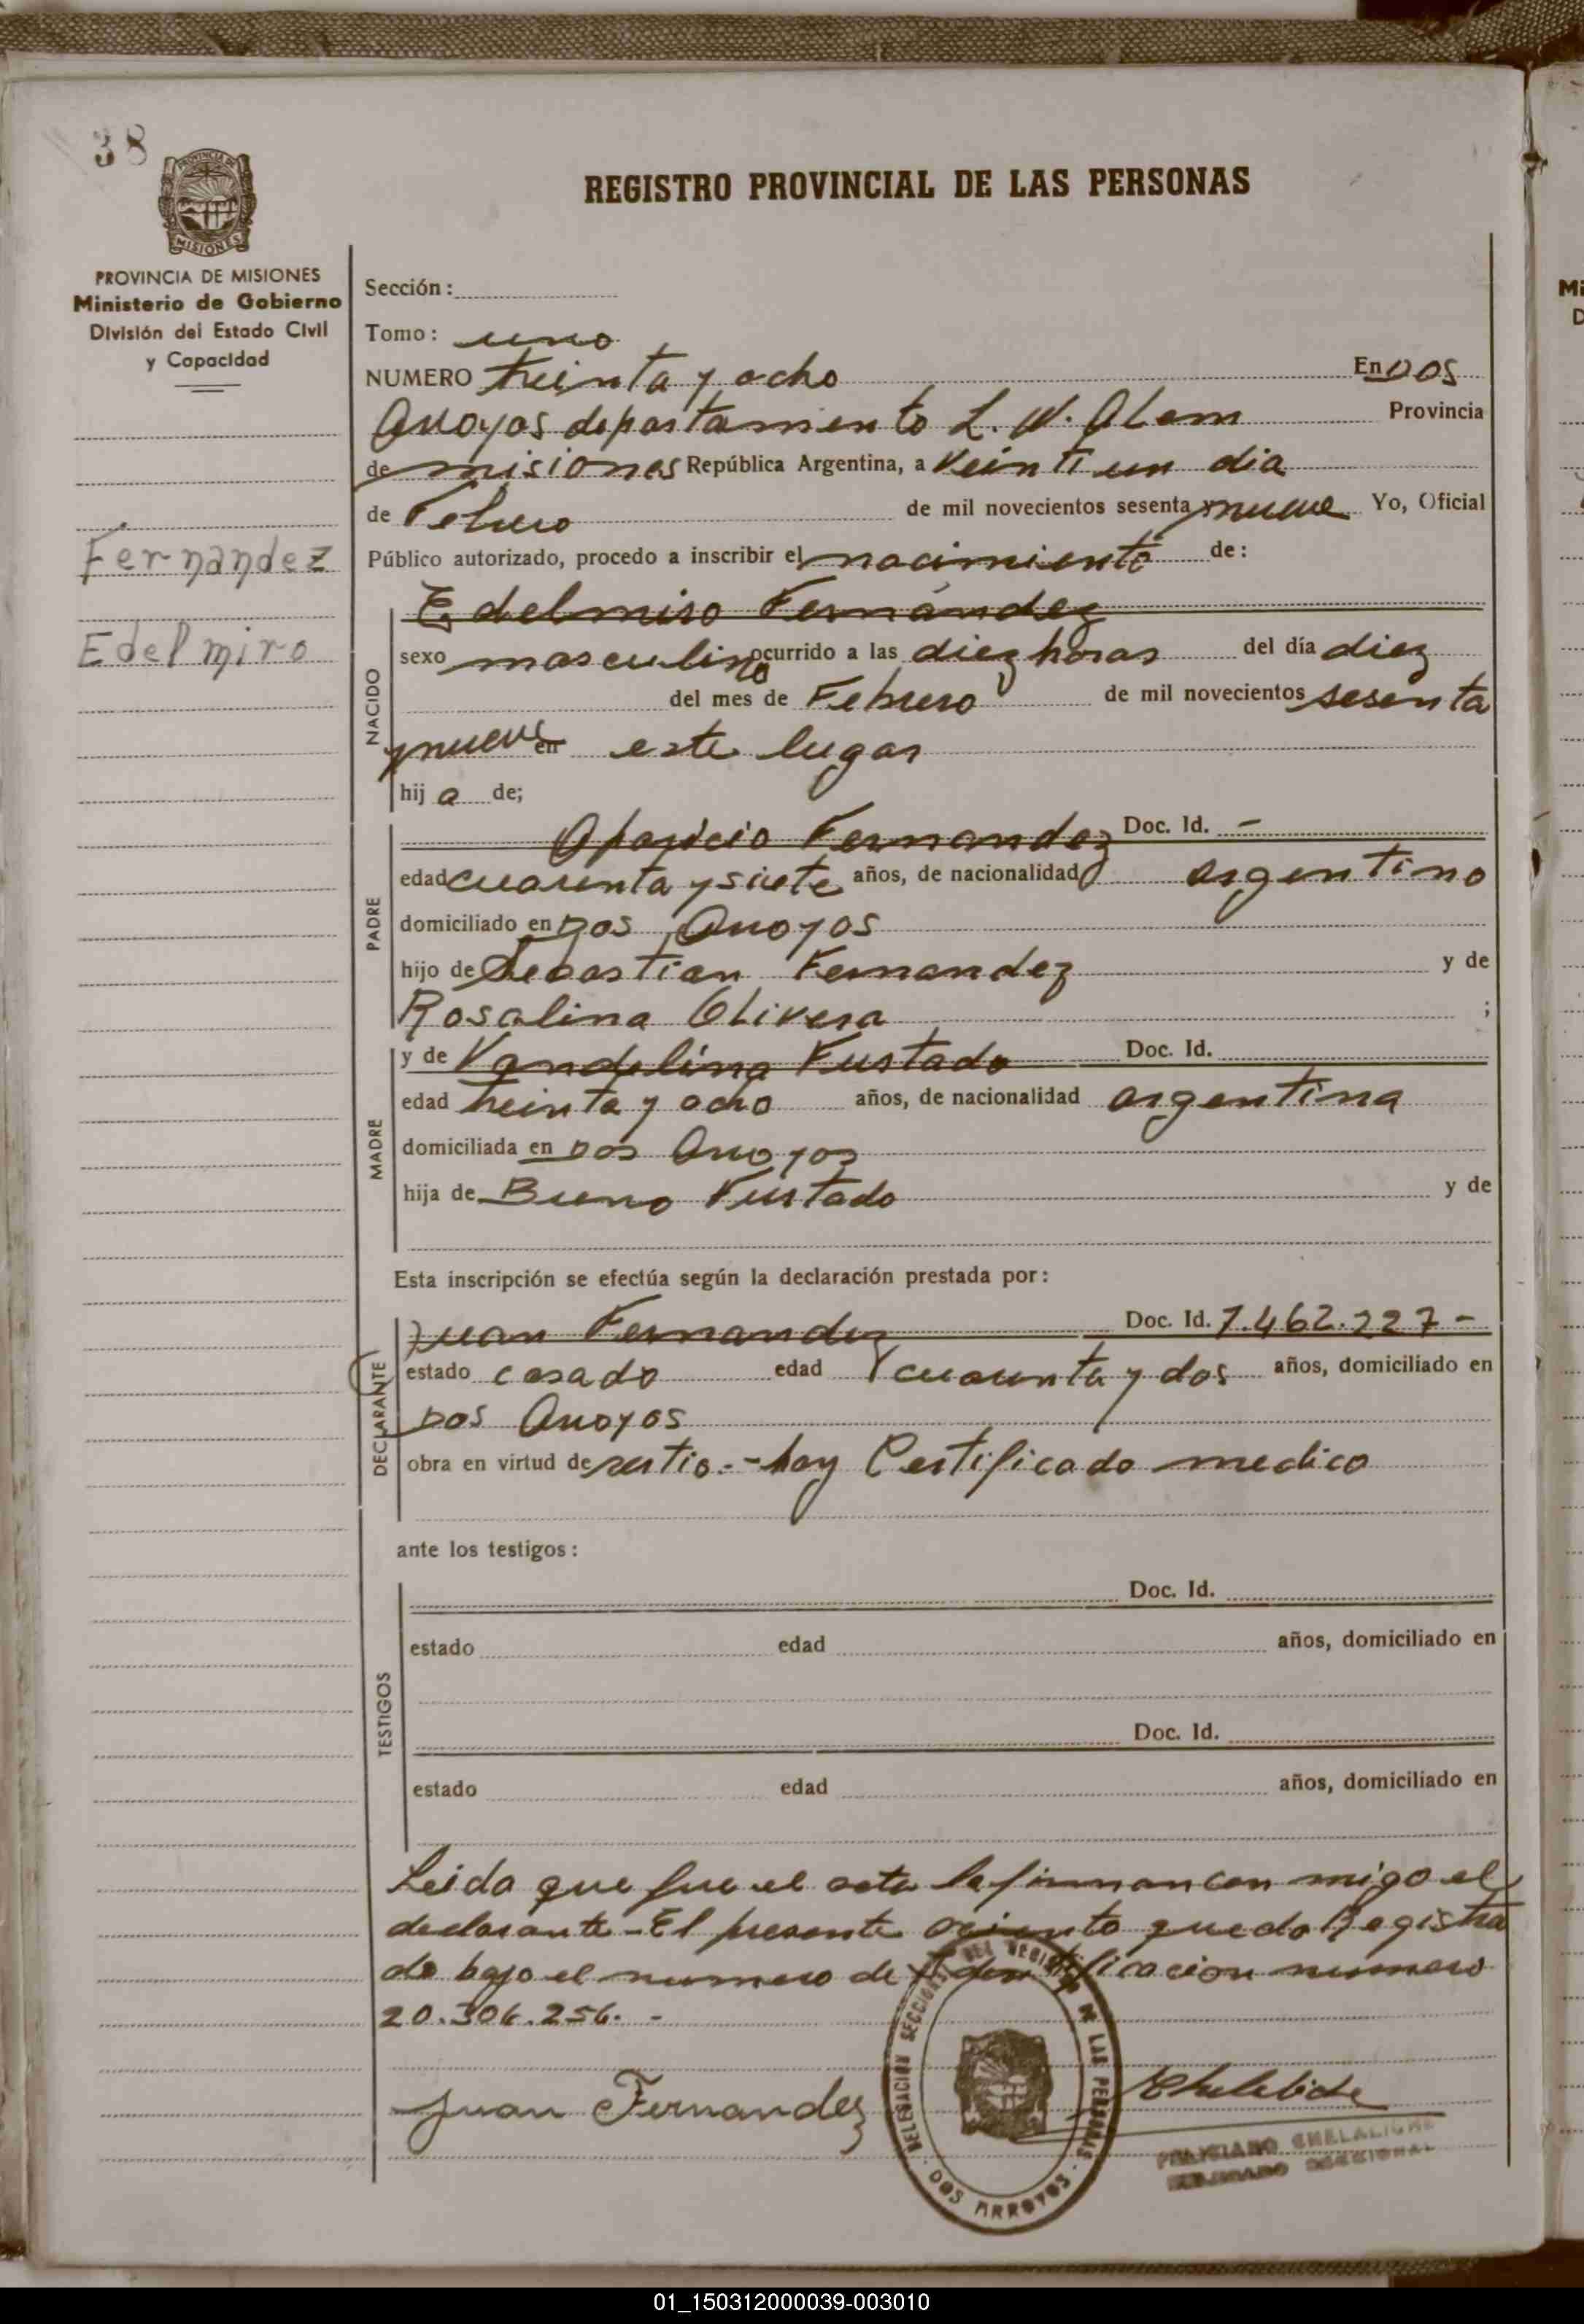 38
PROVINCIA DE
MISIONES
PROVINCIA DE MISIONES
Ministerio de Gobierno
División del Estado Civil
y Capacidad
Fernandez
Edelmiro
REGISTRO PROVINCIAL DE LAS PERSONAS
Sección:
Tomo: uno
NUMERO treinta y ocho En Dos
Arroyos departamento L. N. Alem Provincia
de misiones República Argentina, a veinti un dia
de Febrero de mil novecientos sesenta y nueve Yo, Oficial
Público autorizado, procedo a inscribir el nacimiento de:
Edelmiro Fernández
NACIDO
sexo masculino ocurrido a las diez horas del día diez
del mes de Febrero de mil novecientos sesenta
y nueve en este lugar
hij a de;
PADRE
Aparicio Fernandez Doc. Id. -
edad cuarenta y siete años, de nacionalidad argentino
domiciliado en Dos Arroyos
hijo de Sebastian Fernandez y de
Rosalina Olivera ;
MADRE
y de Vandelina Furtado Doc. Id.
edad treinta y ocho años, de nacionalidad argentina
domiciliada en Dos Arroyos
hija de Bruno Furtado y de
Esta inscripción se efectúa según la declaración prestada por:
DECLARANTE
Juan Fernandez Doc. Id. 7.462.227-
estado casado edad cuarenta y dos años, domiciliado en
Dos Arroyos
obra en virtud de ser tio.- hay Certificado medico
ante los testigos:
TESTIGOS
Doc. Id.
estado edad años, domiciliado en
Doc. Id.
estado edad años, domiciliado en
Leida que fue el acta la firman con migo el
declarante - El presente aciento queda Registra
do bajo el numero de Identificacion numero
20.306.256. -
Juan Fernandez
DELEGACION SECCIONAL DEL REGISTRO DE LAS PERSONAS
DOS ARROYOS
FELICIANO
SECCIONAL
01_150312000039-003010